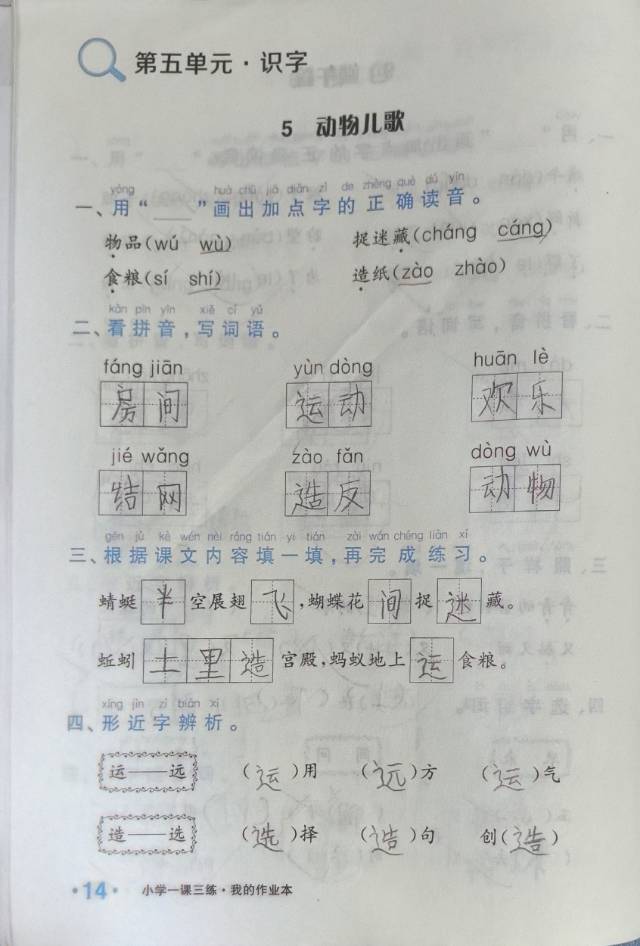 第五单元·识字
5 动物儿歌
yòng huà chū jiā diǎn zì de zhèng què dú yīn
一、用“____”画出加点字的正确读音。
物品(wú wù) 捉迷藏(cháng cáng)
食粮(sí shí) 造纸(zào zhào)
kàn pīn yīn xiě cí yǔ
二、看拼音,写词语。
fáng jiān yùn dòng huān lè
房间 运动 欢乐
jié wǎng zào fǎn dòng wù
结网 造反 动物
gēn jù kè wén nèi róng tián yi tián zài wán chéng liàn xí
三、根据课文内容填一填,再完成练习。
蜻蜓半空展翅飞,蝴蝶花间捉迷藏。
蚯蚓土里造宫殿,蚂蚁地上运食粮。
xíng jìn zì biàn xī
四、形近字辨析。
运——远 (运)用 (远)方 (运)气
造——选 (选)择 (造)句 创(造)
·14· 小学一课三练·我的作业本